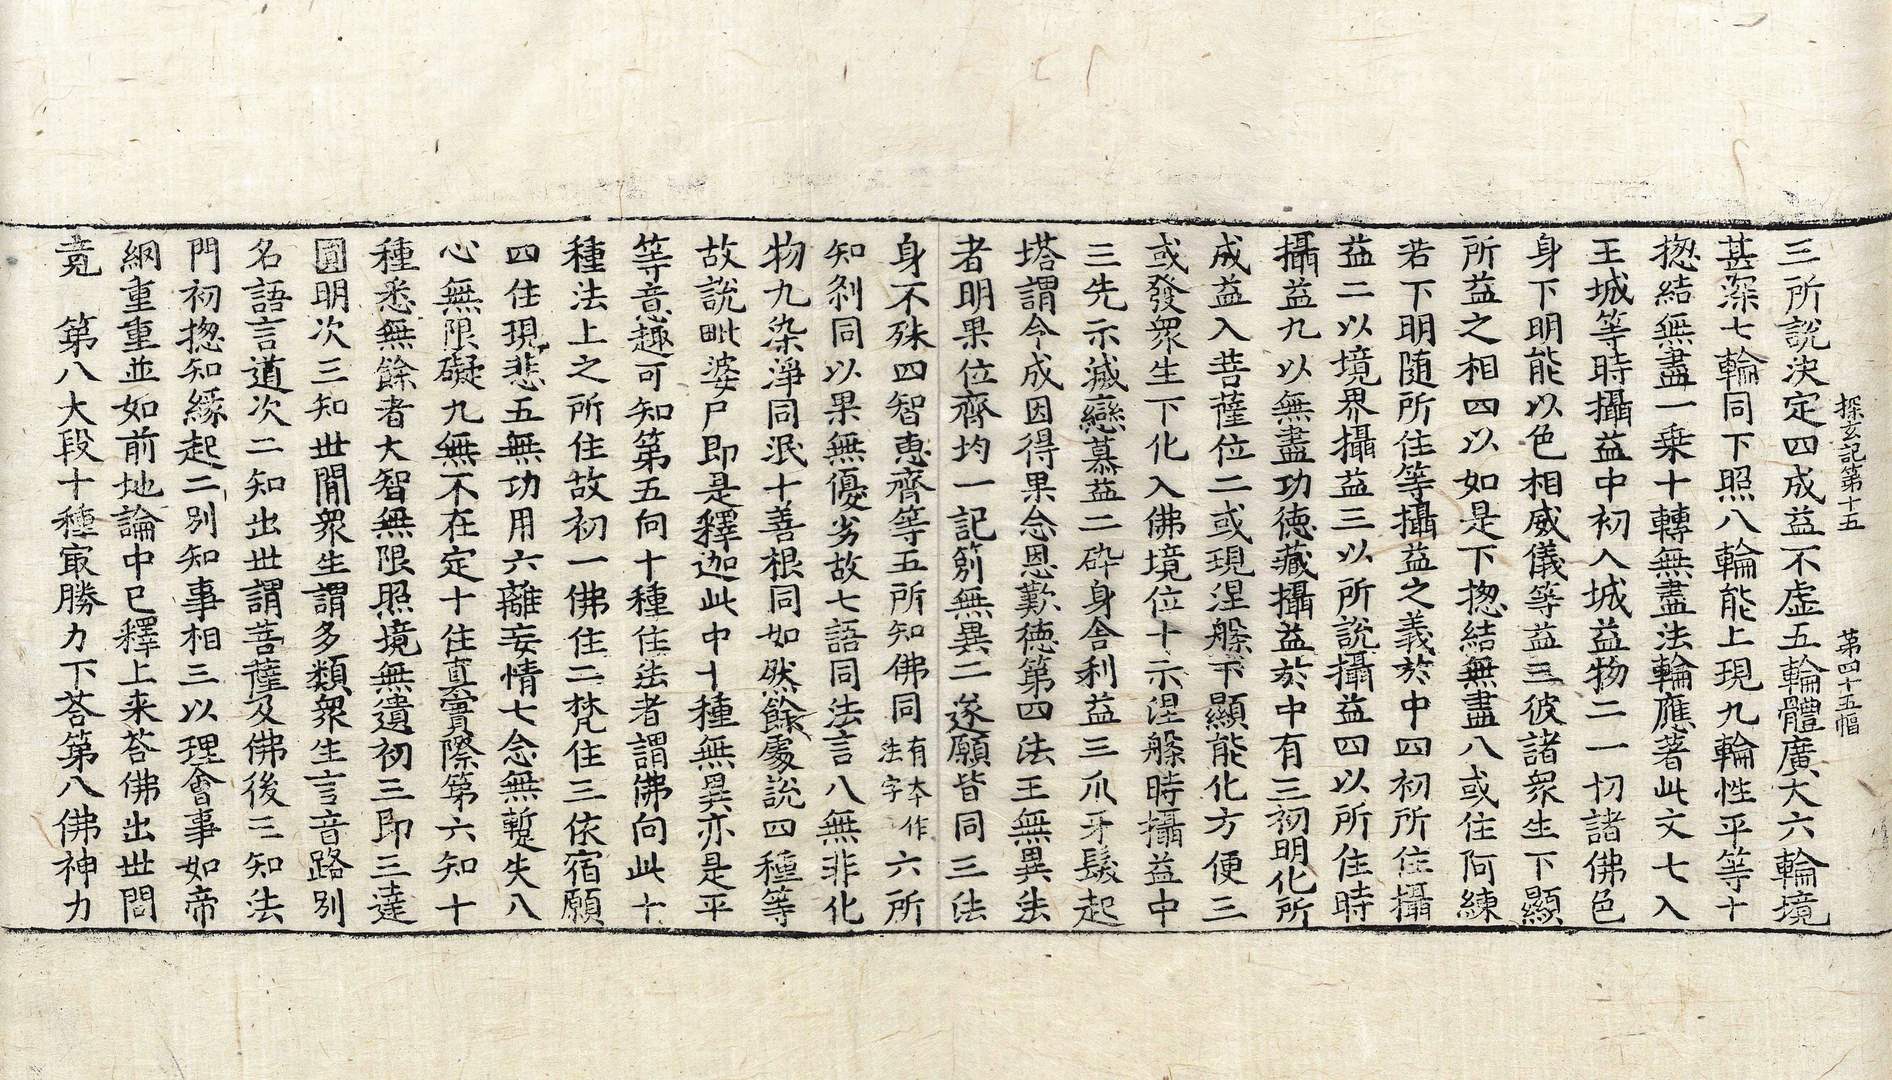 探玄記第十五　第四十五幅
三所說決定四成益不虛五輪體廣大六輪境
甚深七輪同下照八輪能上現九輪性平等十
揔結無盡一乗十轉無盡法輪應著此文七入
王城等時攝益中初入城益物二一切諸佛色
身下明能以色相威儀等益三彼諸衆生下顯
所益之相四以如是下揔結無盡八或住阿練
若下明随所住等攝益之義於中四初所住攝
益二以境界攝益三以所說攝益四以所住時
攝益九以無盡功徳藏攝益於中有三初明化所
成益入菩薩位二或現涅槃下顯能化方便三
或發衆生下化入佛境位十示涅槃時攝益中
三先示滅戀慕益二碎身舍利益三爪牙髮起
塔謂今成因得果念恩歎徳第四法王無異法
者明果位齊均一記莂無異二遂願皆同三法
身不殊四智恵齊等五所知佛同有本作法字六所
知刹同以果無優劣故七語同法言八無非化
物九染淨同泯十善根同如然餘處說四種等
故說毗婆尸即是釋迦此中十種無異亦是平
等意趣可知第五向十種住法者謂佛向此十
種法上之所住故初一佛住二梵住三依宿願
四住現悲五無功用六離妄情七念無蹔失八
心無限礙九無不在定十住真實際第六知十
種悉無餘者大智無限照境無遺初三即三達
圓明次三知世間衆生謂多類衆生言音路別
名語言道次二知出世謂菩薩及佛後二知法
門初揔知緣起二別知事相三以理會事如帝
網重重並如前地論中已釋上来荅佛出世間
竟　第八大段十種冣勝力下荅第八佛神力